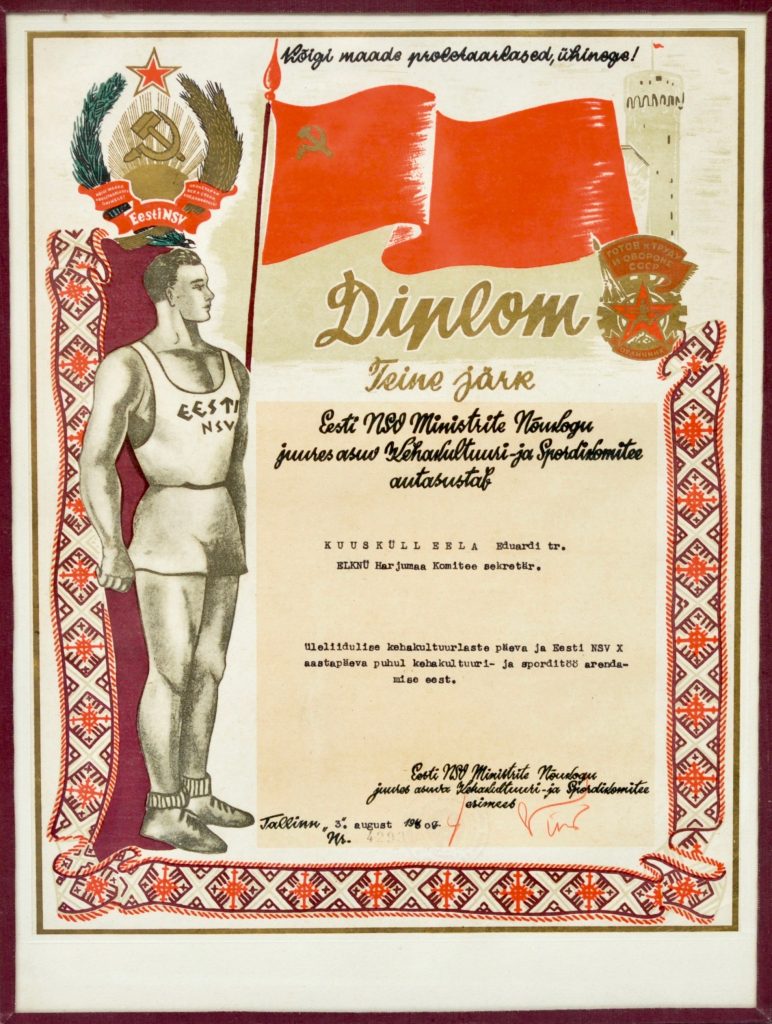 Kõigi maade proletaarlased, ühinege!
Eesti NSV
ГОТОВ К ТРУДУ
И ОБОРОНЕ
СССР
ОТЛИЧНИК
Diplom
Teine järk
EESTI
NSV
Eesti NSV Ministrite Nõukogu
juures asuv Kehakultuuri- ja Spordikomitee
autasustab
KUUSKÜLL EELA Eduardi tr.
ELKNÜ Harjumaa Komitee sekretär.
üleliidulise kehakultuurlaste päeva ja Eesti NSV X
aastapäeva puhul kehakultuuri- ja sporditöö arenda-
mise eest.
Eesti NSV Ministrite Nõukogu
juures asuva Kehakultuuri- ja Spordikomitee
esimees
Tallinn „3." august
Nr.